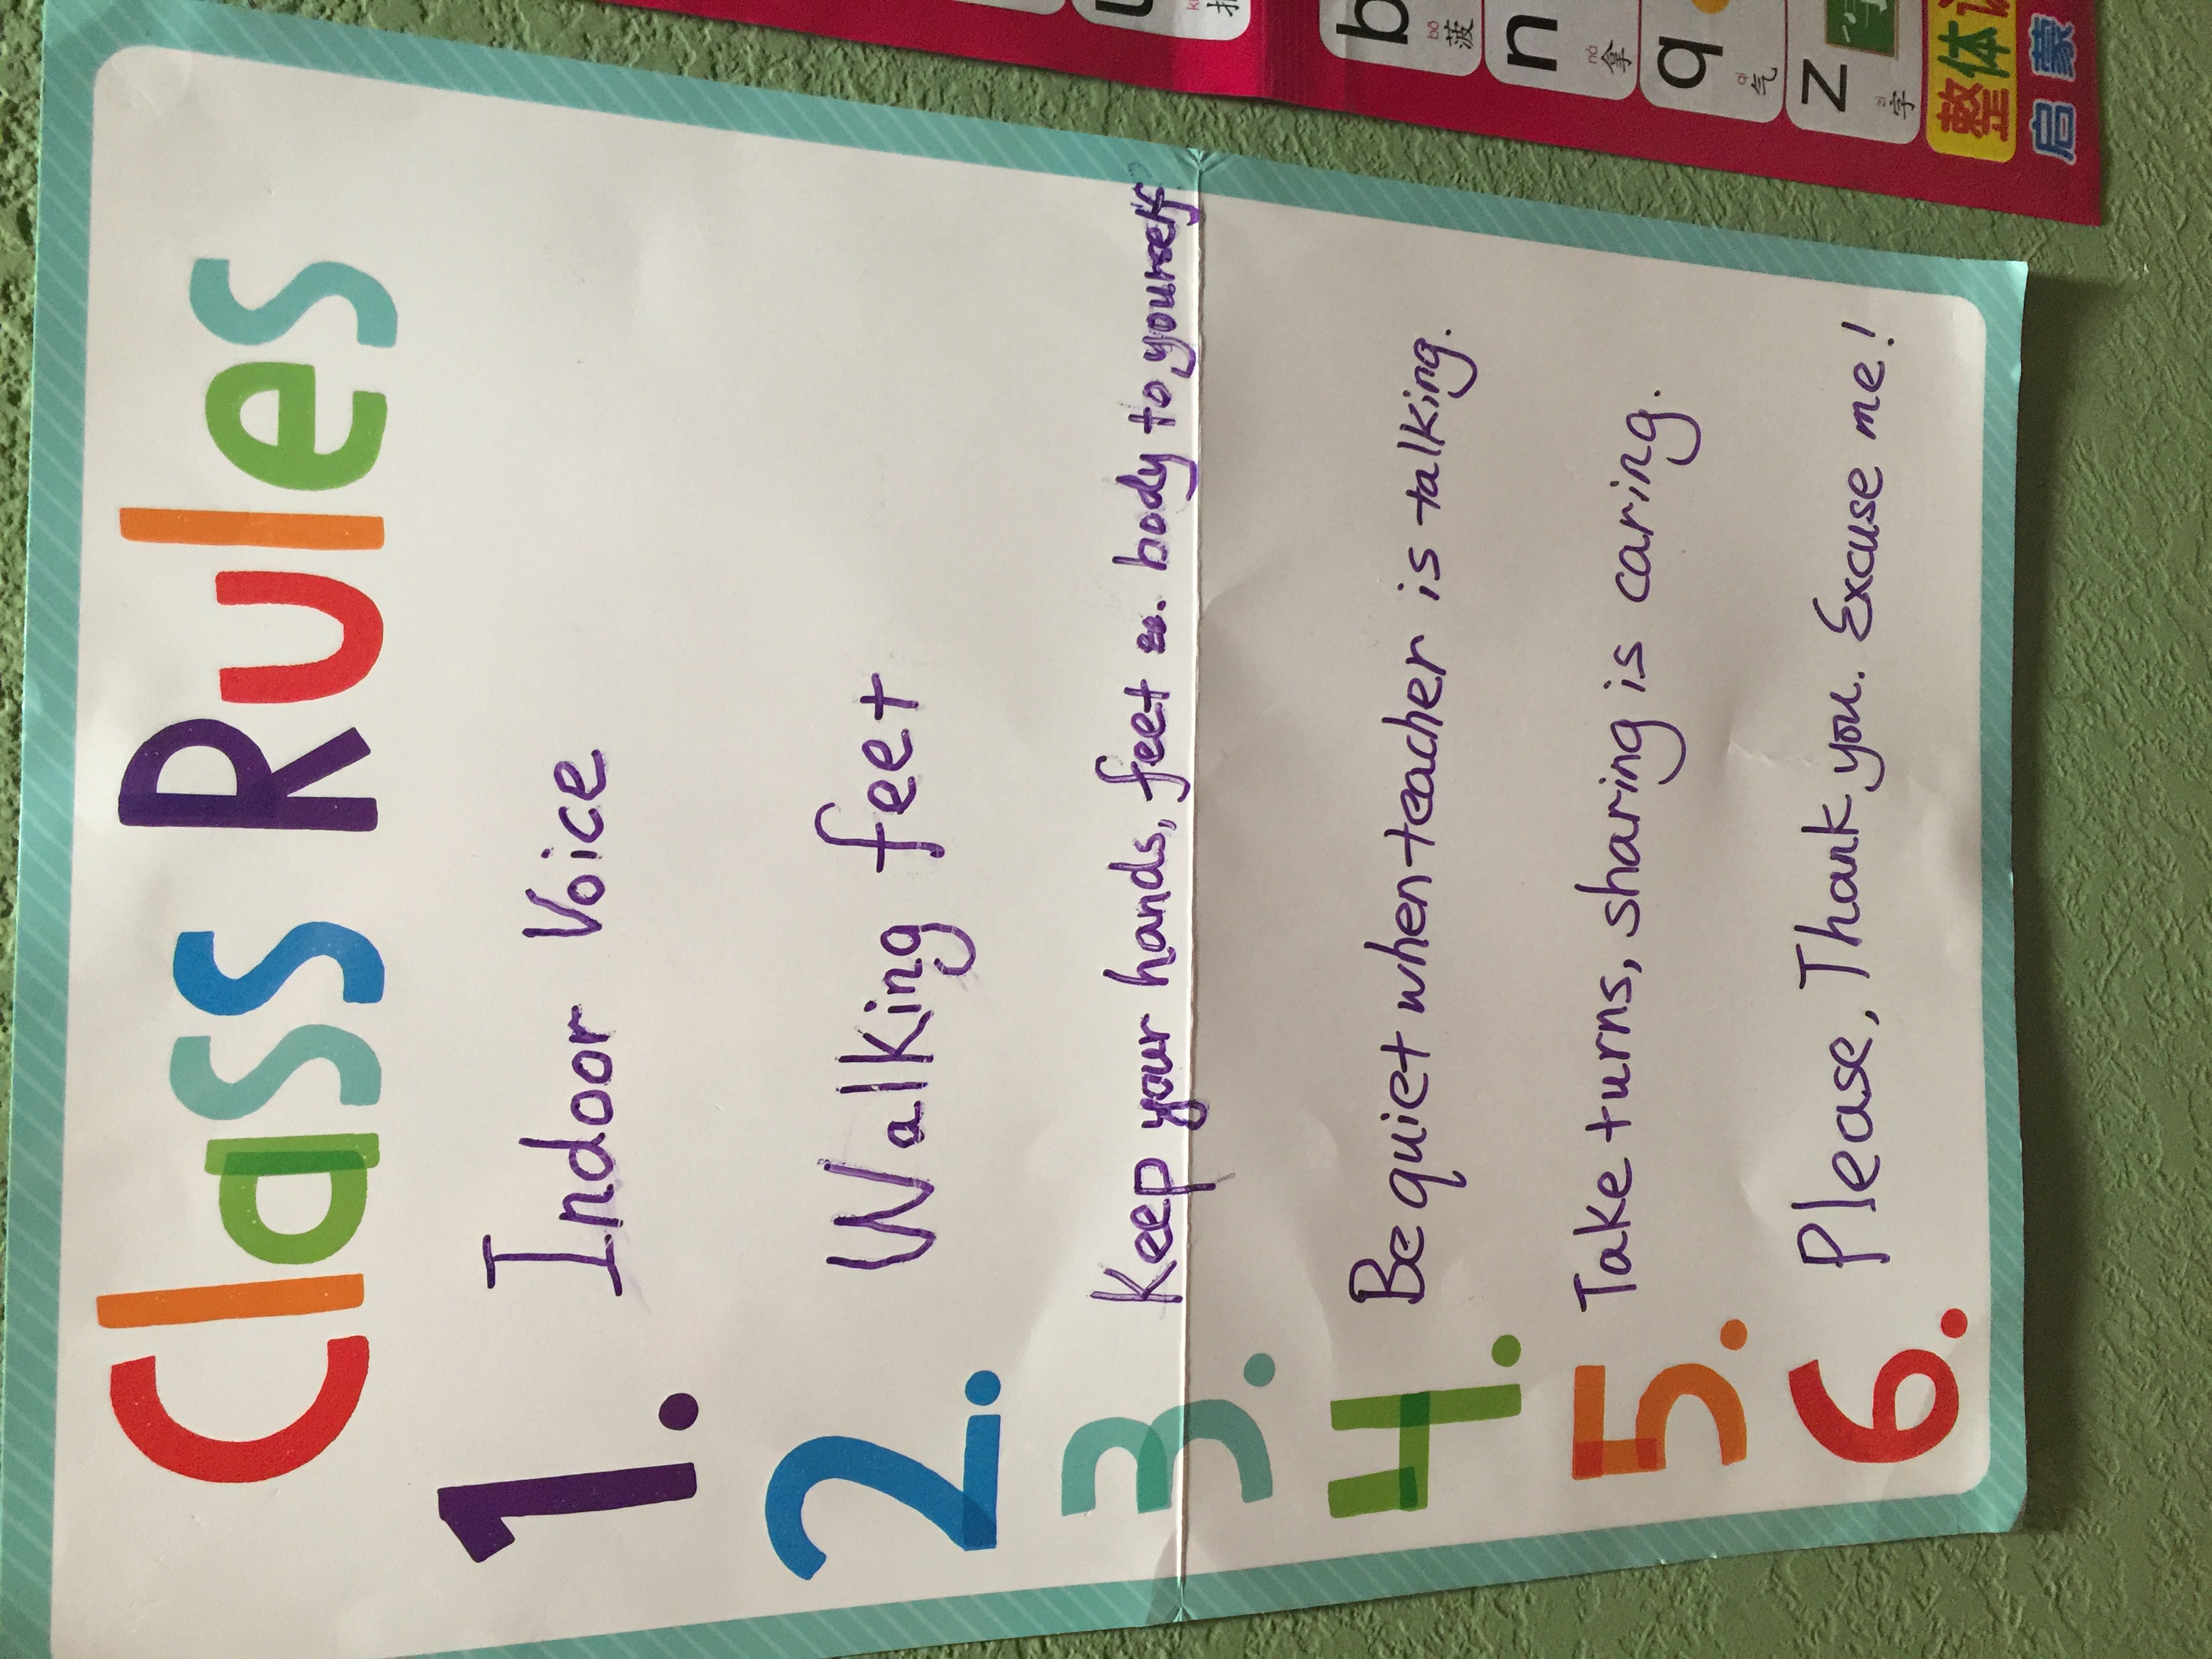 Class Rules
1. Indoor Voice
2. Walking feet
3. Keep your hands, feet & body to yourself
4. Be quiet when teacher is talking.
5. Take turns, sharing is caring.
6. Please, Thank you. Excuse me!
b
bō
菠
n
ná
拿
q
qì
气
z
zì
字
整体
启蒙